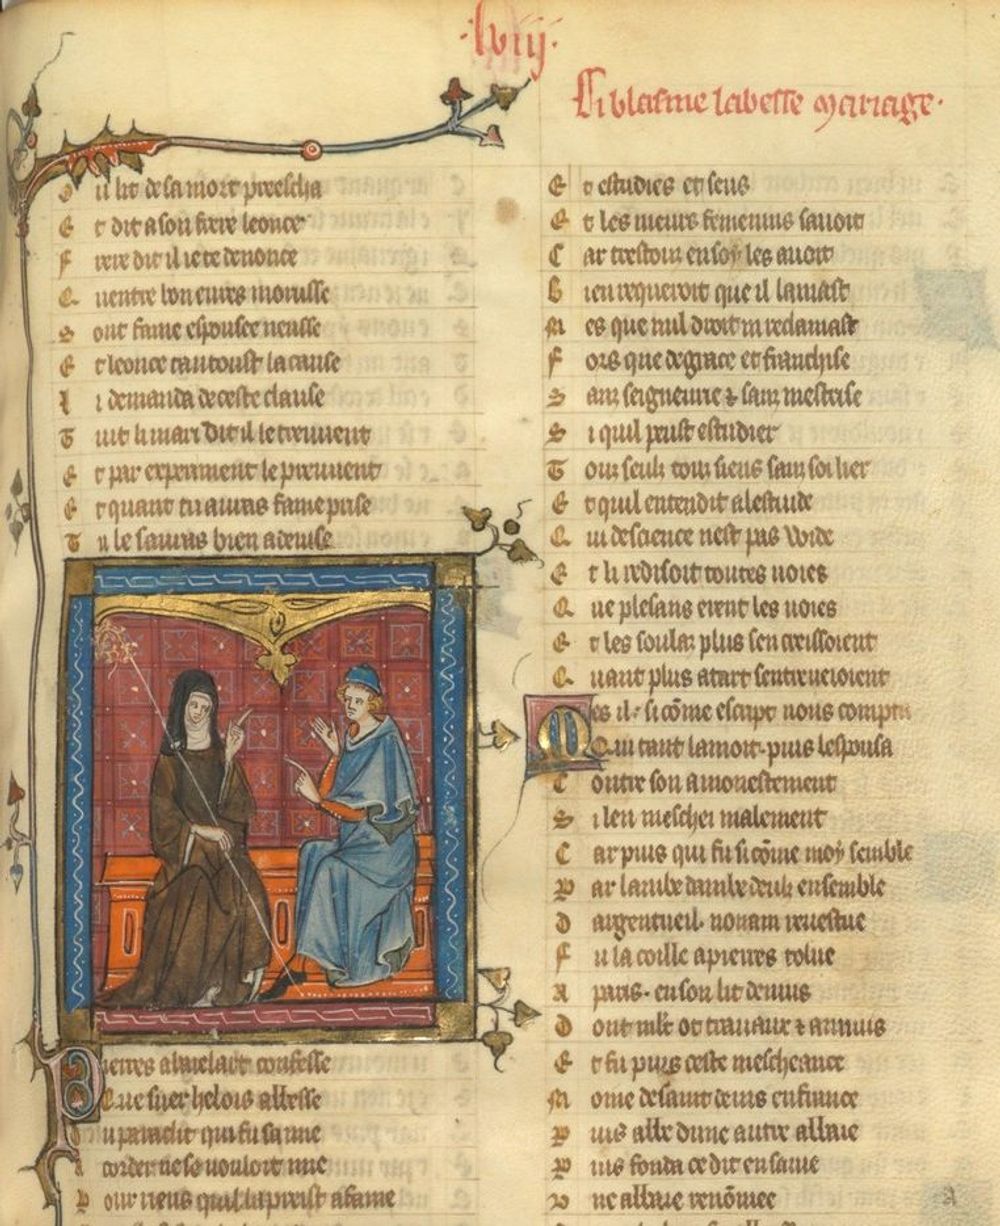 .lviij.
Ci blasme labesse mariage.
Q il lit de sa mort preescha
E t dit a son frere leonce
F rere dit il ie te denonce
Q uentre bon eures morusse
S onc fame espousee neusse
E t leonce tantoust la cause
L i demanda de ceste clause
T uit li mari dit il le treuuent
E t par experiment le preuuent
E t quant tu auras fame prise
T u le sauras bien a deuise
Pierres abaielart confesse
Que suer helois abesse
Du paraclit qui fu samie
A corder ne se vouloit mie
P our riens quil la preist a fame
E t estudies et seus
E t les meurs femenins sauoit
C ar trestouz en soy les auoit
B ien requeroit que il lamast
M es que nul droit ni reclamast
F ors que de grace et franchise
S anz seigneurie & sanz mestrise
S i quil peust estudier
T ouz seulz touz siens sanz soi lier
E t quil entendit a lestude
Q ui de science nest pas vvide
E t li redisoit toutes uoies
Q ue plesans erent les uoies
E t les soulaz plus sen creissoient
Q uant plus a tart sentreueoient
Mes il. si come escript nous compta
Qui tant lamoit. puis lespousa
C ontre son amonestement
S i len meschei malement
C ar puis qui fu si come moy semble
P ar lacorde dambedeulz ensemble
D argentueil. nonain reuestue
F u la coille a pierres tolue
A paris. en son lit de nuis
D ont mlt ot trauaux & annuis
E t fu puis ceste mescheance
M oine de saint denis en france
P uis abbe dune autre abbaie
P uis fonda ce dit en sa uie
V ne abbaie renomee